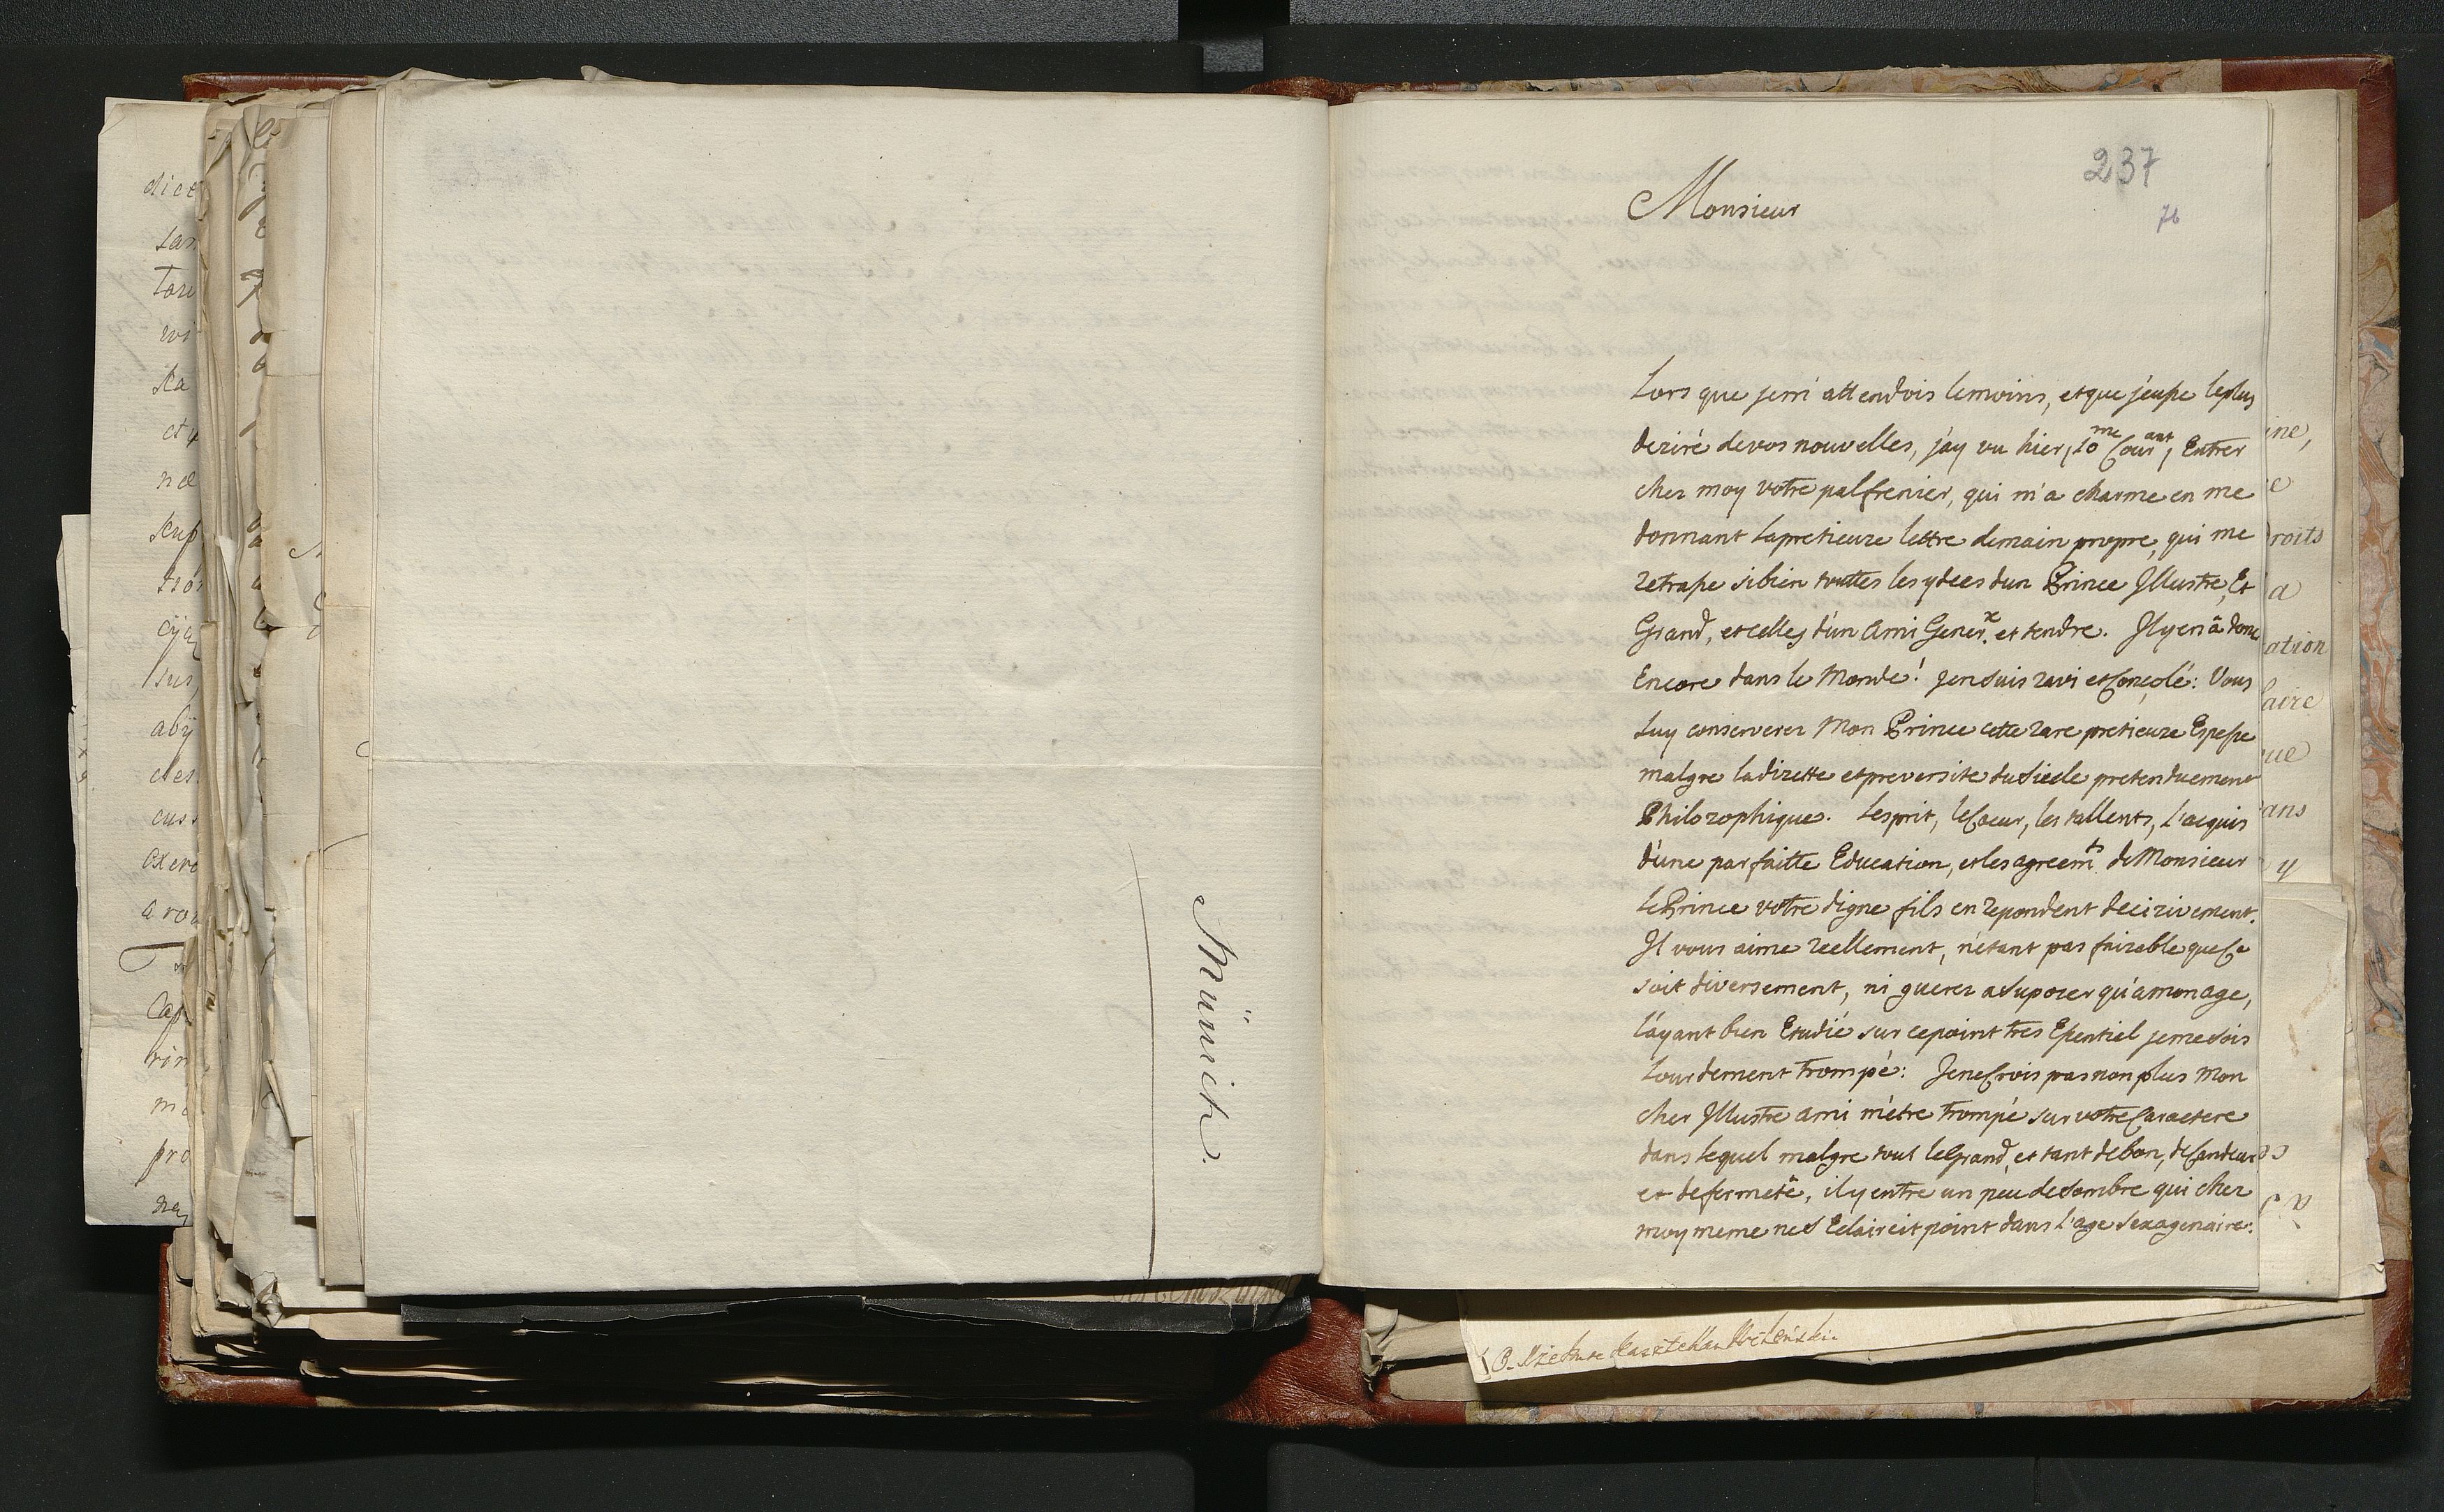 Münnich.
237
76
Monsieur
Lors que j'em attendois lemoins, et que j'eusse leplus
deziré devos nouvelles, j'ay vu hier, 10me Courant, Entrer
chez moy votre palfrenier, qui m'a charme en me
donnant lapretieuze lettre demain propre, qui me
retrasse sibien touttes les ydees dun Prince Illustre, Et
Grand, et celles d'un Ami Gener.x et tendre. Ilyen â donc
Encore dans le Monde! jensuis ravi et Consolé: Vous
Luy conserverez Mon Prince cette rare pretieuze Espesse
malgre ladizette et preversite du Siecle pretenduement
Philozophique. Lesprit, le Coeur, les tallents, l'acquis
d'une parfaitte Education, et les agreemts. de Monsieur
le Prince votre digne fils en repondent decizivement.
Il vous aime reellement, n'etant pas faizable que Ca
soit diversement, ni guerez a Supozer qu'a mon age,
l'ayant bien Etudié sur ce point tres Essentiel je me sois
Lourdement trompé: Jene Crois pas non plus Mon
cher Illustre ami m'étre trompé sur votre Caractere
dans lequel malgre tout le Grand, et tant de bon, de Candeur
et de fermeté, il y entre un peu de sombre qui chez
moy meme ne S'Eclaircit point dans l'age Sexagenaire:
dict
Tare
wi
ine,
droits
a
ation
laire
ue
ans
y